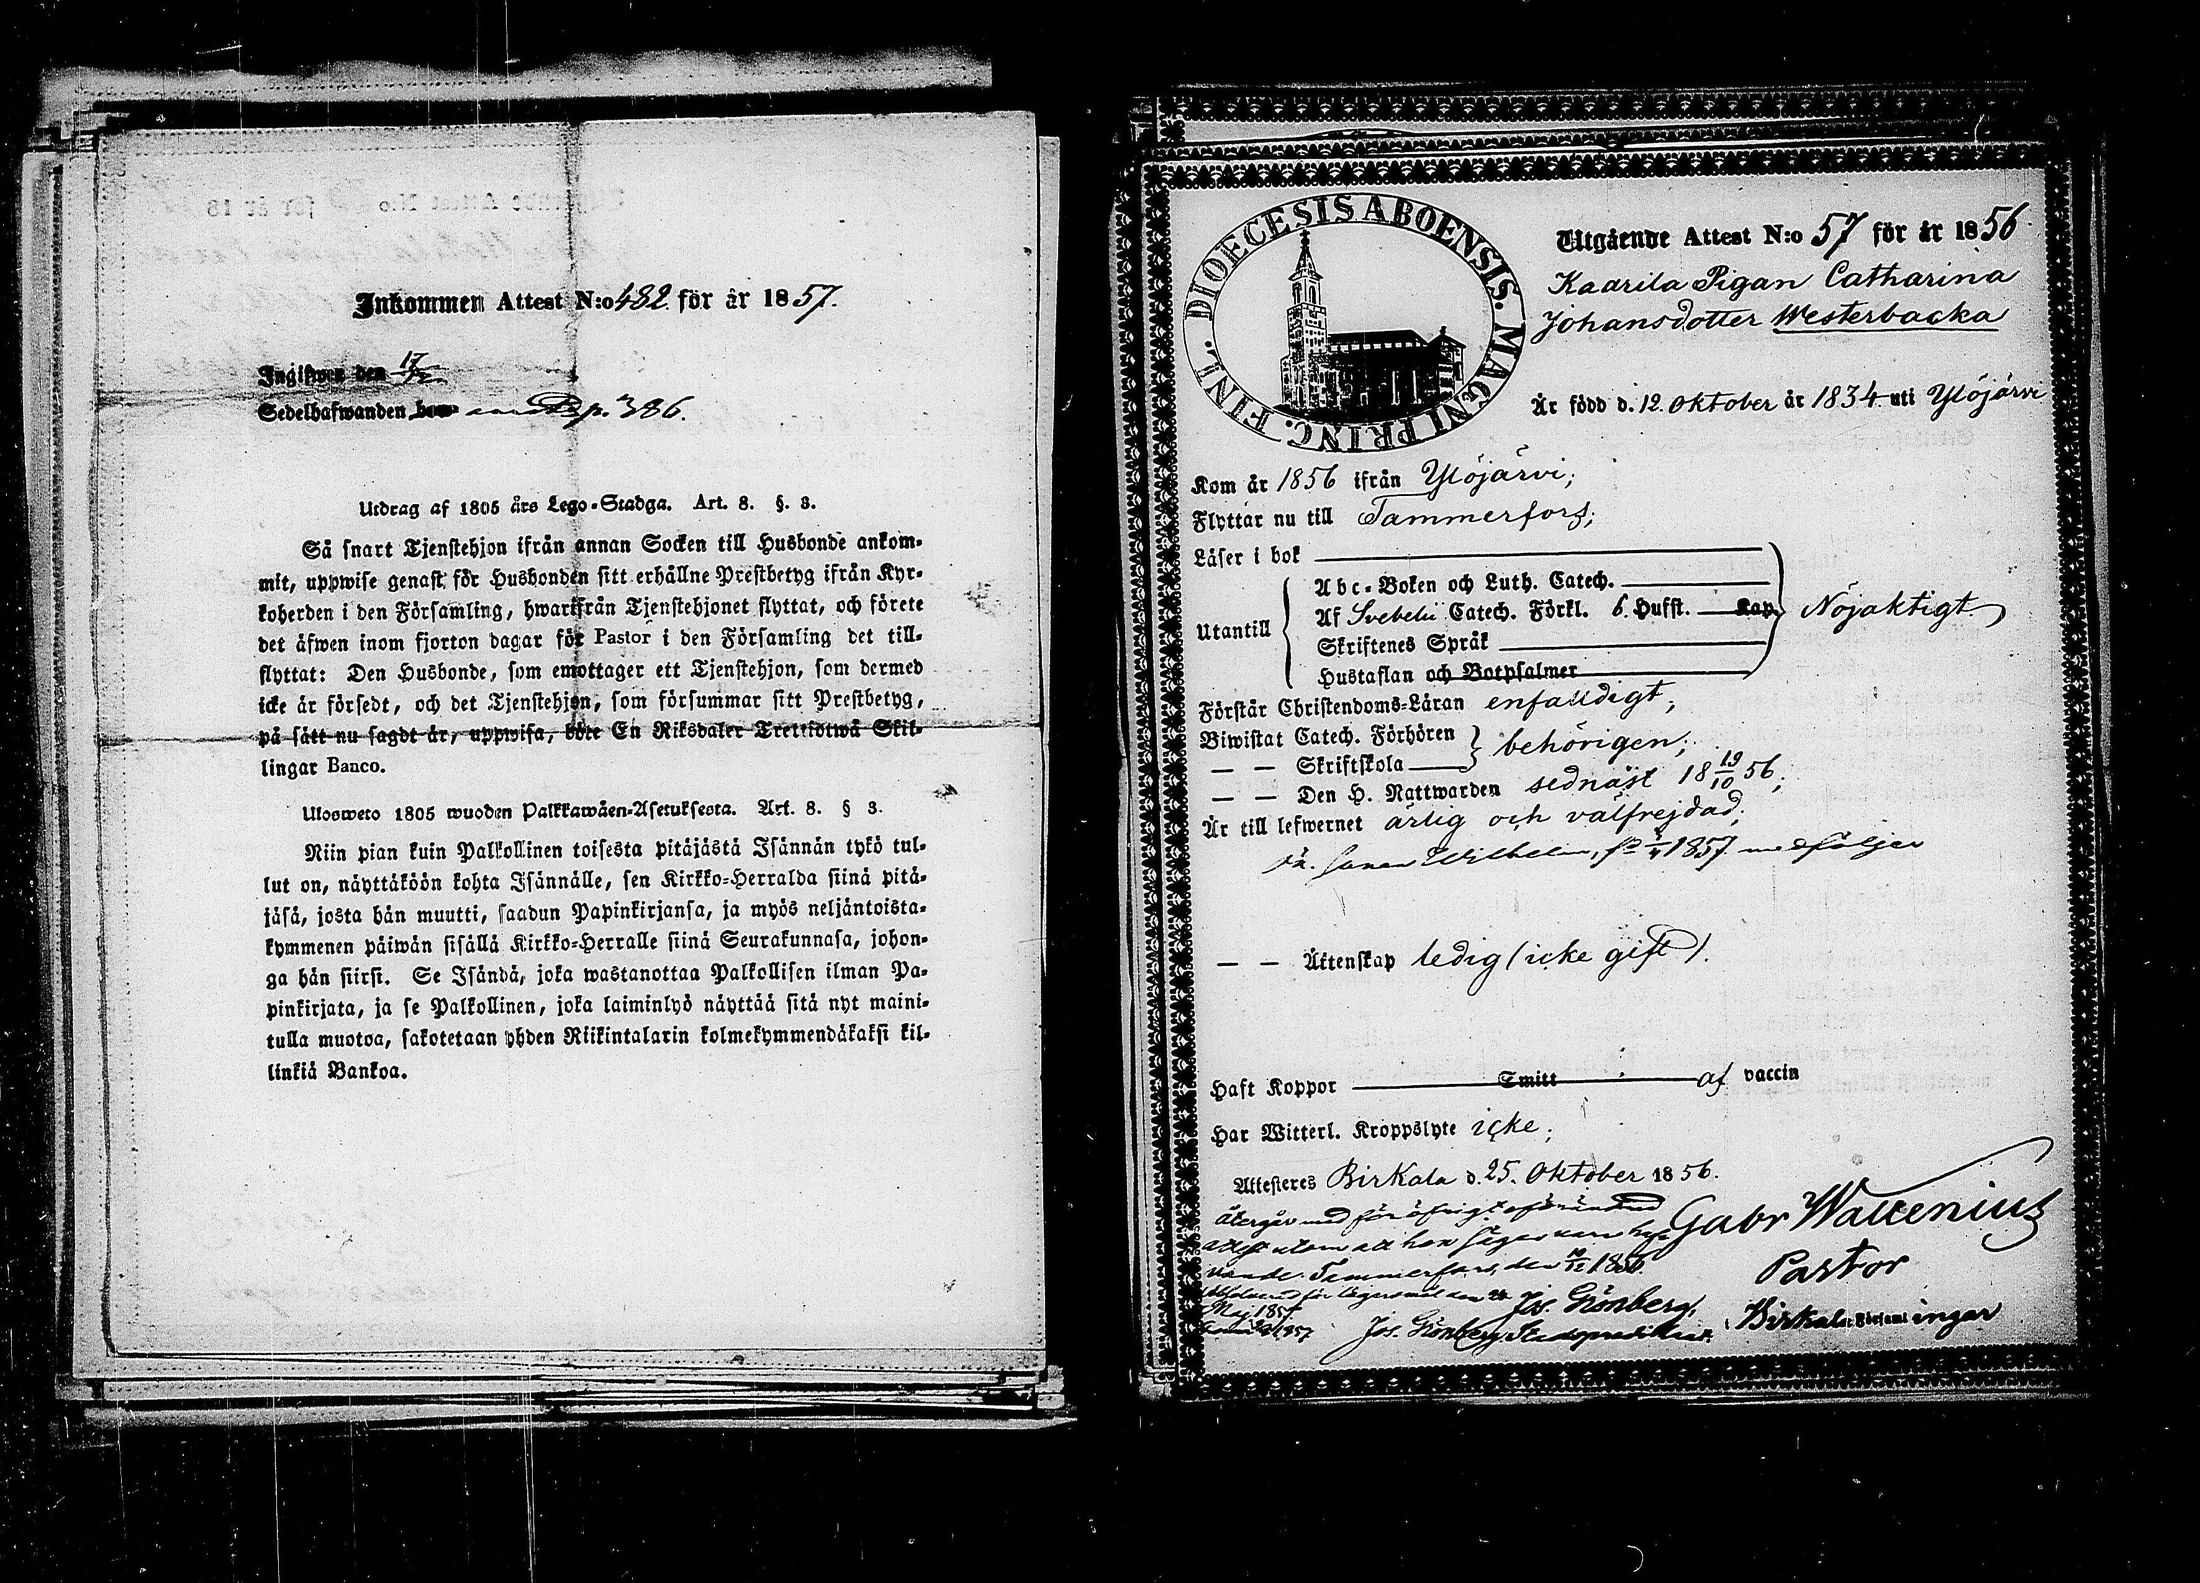 Inkommen Attest N:o 482. för år 1857.
Ingifwen den 17/
Sedelhafwanden p. 386.
Utdrag af 1805 års Lego-Stadga. Art. 8. §. 3.
Så snart Tjenstehjon ifrån annan Socken till Husbonde ankom-
mit, uppwise genast för Husbonden sitt erhållne Prestbetyg ifrån Kyr-
koherden i den Församling, hwarifrån Tjenstehjonet flyttat, och förete
det äfwen inom fjorton dagar för Pastor i den Församling det till-
flyttat: Den Husbonde, som emottager ett Tjenstehjon, som dermed
icke är försedt, och det Tjenstehjon, som försummar sitt Prestbetyg,
på sätt nu sagdt är, uppwisa, böte En Riksdaler Trettiotwå Skil-
lingar Banco.
Ulosweto 1805 wuoden Palkkawäen-Asetuksesta. Art. 8. § 3.
Niin pian kuin Palkollinen toisesta pitäjästä Isännän tykö tul-
lut on, näyttäköön kohta Isännälle, sen Kirkko-Herralda siinä pitä-
jäsä, josta hän muutti, saadun Papinkirjansa, ja myös neljäntoista-
kymmenen päiwän sisällä Kirkko-Herralle siinä Seurakunnasa, johon-
ga hän siirsi. Se Isändä, joka wastanottaa Palkollisen ilman Pa-
pinkirjata, ja se Palkollinen, joka laiminlyö näyttää sitä nyt maini-
tulla muotoa, sakotetaan yhden Riikintalarin kolmekymmendäkaksi kil-
linkiä Bankoa.
DIOECESIS ABOENSIS. MAGNI PRINC. FINL.
Utgående Attest N:o 57 för år 1856
Kaarila Pigan Catharina
Johansdotter Westerbacka
Är född d. 12. Oktober år 1834 uti Ylöjärvi
Kom år 1856 ifrån Ylöjärvi;
Flyttar nu till Tammerfors;
Läser i bok
Abc-Boken och Luth. Catech.
Utantill Af Svebelii Catech. Förkl. 6. Hufst. Kap. Nöjaktigt
Skriftenes Språk
Hustaflan och Botpsalmer
Förstår Christendoms-Läran enfalldigt;
Biwistat Catech. Förhören behörigen;
— — Skriftskola
— — Den H. Nattwarden sednast 18 19/10 56;
Är till lefwernet ärlig och välfrejdad;
Wilhelm, 1857 medföljer
— — Äktenskap ledig (icke gift).
Haft Koppor Smitt af vaccin
Har Witterl. Kroppslyte icke;
Attesteres Birkala d. 25. Oktober 1856.
Återgår med för öfrigt oförändrad
attest utom att hon säges vara
Gabr Wallenius
Tammerfors, den
Pastor
Jos. Grönberg,
Maj 1857
Birkala Församl ingar
Jos. Grönberg, Stadspredikant.